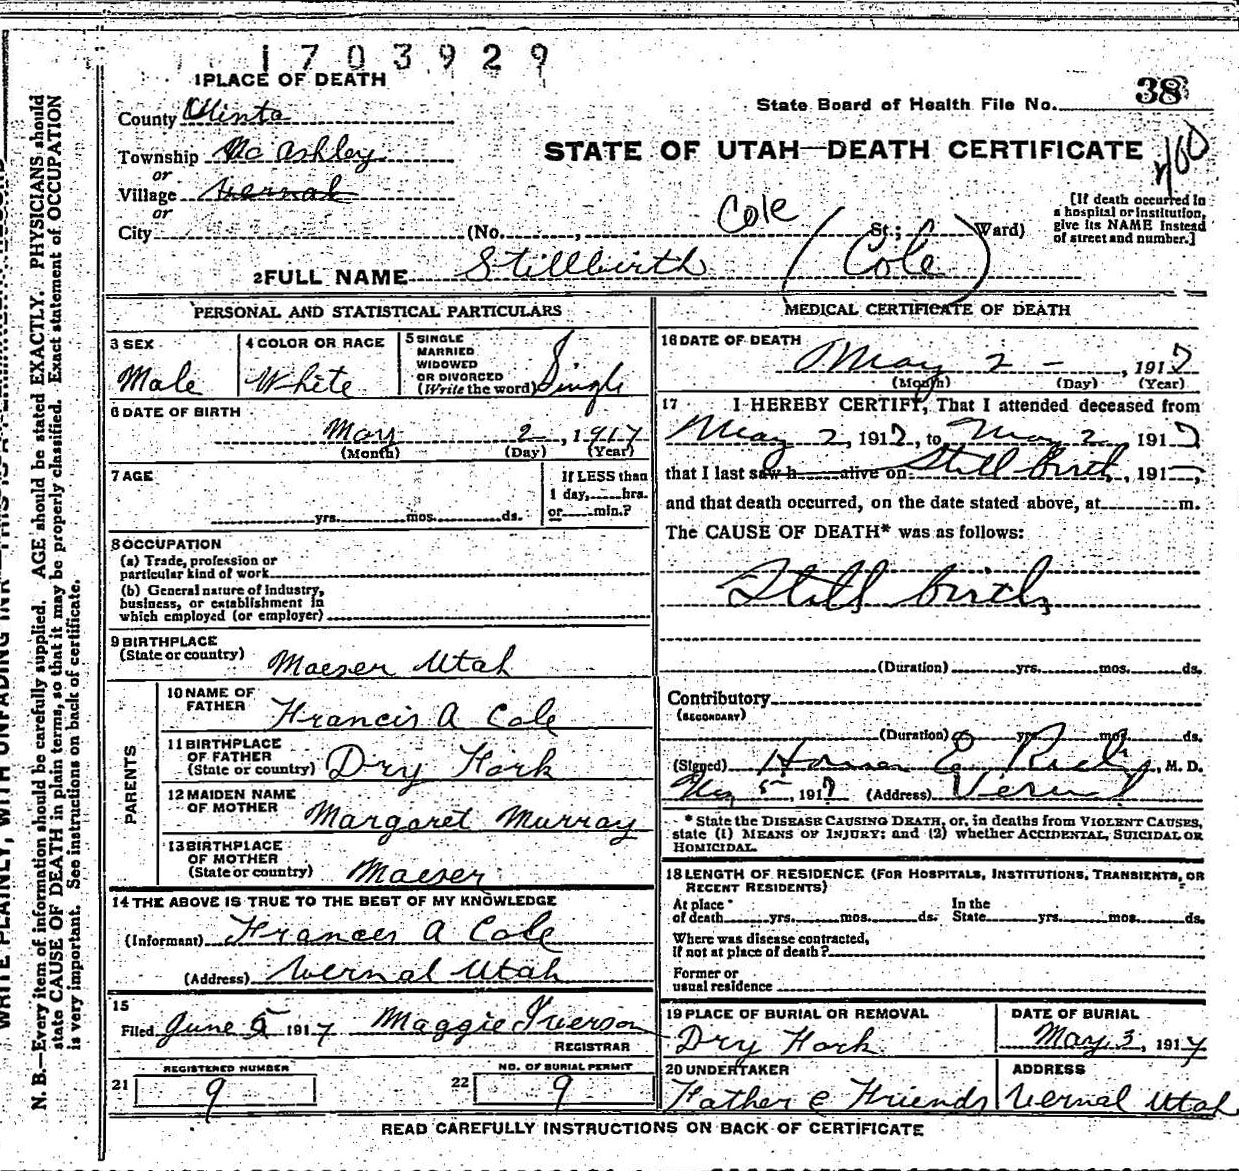 1703929
1 PLACE OF DEATH
State Board of Health File No. 38
County Uinta
Township Mc Ashley
STATE OF UTAH—DEATH CERTIFICATE
or
Village Vernal
or
[If death occurred in
a hospital or institution,
give its NAME instead
of street and number.]
Cole
City (No. , St.; Ward)
2 FULL NAME Stillbirth (Cole)
PERSONAL AND STATISTICAL PARTICULARS
3 SEX
Male
4 COLOR OR RACE
White
5 SINGLE
MARRIED
WIDOWED
OR DIVORCED
(Write the word) Single
6 DATE OF BIRTH
May 2, 1917
(Month) (Day) (Year)
7 AGE
yrs. mos. ds.
If LESS than
1 day, hrs.
or min.?
8 OCCUPATION
(a) Trade, profession or
particular kind of work
(b) General nature of industry,
business, or establishment in
which employed (or employer)
9 BIRTHPLACE
(State or country) Maeser Utah
PARENTS
10 NAME OF
FATHER Francis A Cole
11 BIRTHPLACE
OF FATHER
(State or country) Dry Fork
12 MAIDEN NAME
OF MOTHER Margaret Murray
13 BIRTHPLACE
OF MOTHER
(State or country) Maeser
14 THE ABOVE IS TRUE TO THE BEST OF MY KNOWLEDGE
(Informant) Frances A Cole
(Address) Vernal Utah
15
Filed June 5 1917 Maggie Iverson
REGISTRAR
REGISTERED NUMBER
21 9
NO. OF BURIAL PERMIT
22 9
MEDICAL CERTIFICATE OF DEATH
16 DATE OF DEATH
May 2 - , 1917
(Month) (Day) (Year)
17 I HEREBY CERTIFY, That I attended deceased from
May 2, 1917, to May 2, 1917
that I last saw h alive on Still Birth, 191—,
and that death occurred, on the date stated above, at m.
The CAUSE OF DEATH* was as follows:
Still birth
(Duration) yrs. mos. ds.
Contributory
(SECONDARY)
(Duration) yrs. mos. ds.
(Signed) Homer E Rich, M. D.
May 5, 1917 (Address) Vernal
* State the DISEASE CAUSING DEATH, or, in deaths from VIOLENT CAUSES,
state (1) MEANS OF INJURY; and (2) whether ACCIDENTAL, SUICIDAL OR
HOMICIDAL.
18 LENGTH OF RESIDENCE (FOR HOSPITALS, INSTITUTIONS, TRANSIENTS, OR
RECENT RESIDENTS)
At place
of death yrs. mos. ds.
In the
State yrs. mos. ds.
Where was disease contracted,
if not at place of death?
Former or
usual residence
19 PLACE OF BURIAL OR REMOVAL
Dry Fork
DATE OF BURIAL
May 3, 1917
20 UNDERTAKER
Father & Friends
ADDRESS
Vernal Utah
READ CAREFULLY INSTRUCTIONS ON BACK OF CERTIFICATE
N. B.—Every item of information should be carefully supplied. AGE should be stated EXACTLY. PHYSICIANS should
state CAUSE OF DEATH in plain terms, so that it may be properly classified. Exact statement of OCCUPATION
is very important. See instructions on back of certificate.